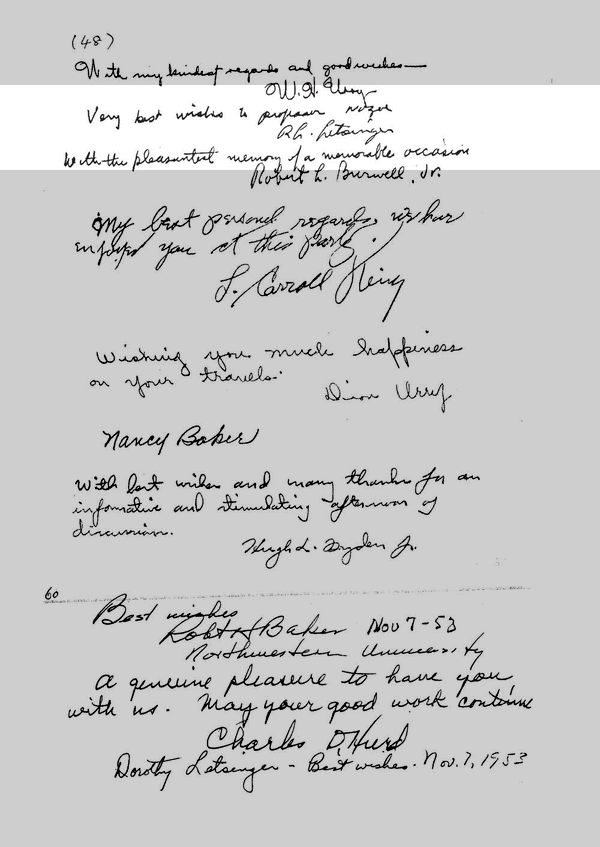 (48)
With my kindest regards and good wishes—
W. H. Urry
Very best wishes to professor Nozoe
R. L. Letsinger
With the pleasantest memory of a memorable occasion
Robert L. Burwell, Jr.
My best personal regards. We have
enjoyed you at this party.
L. Carroll King
Wishing you much happiness
on your travels.
Urry
Nancy Baker
With best wishes and many thanks for an
informative and stimulating afternoon of
discussion.
Hugh L. Dryden Jr.
60
Best wishes
Robt H Baker Nov 7-53
Northwestern University
A genuine pleasure to have you
with us. May your good work continue
Charles D. Hurd
Dorothy Letsinger - Best wishes. Nov. 7, 1953